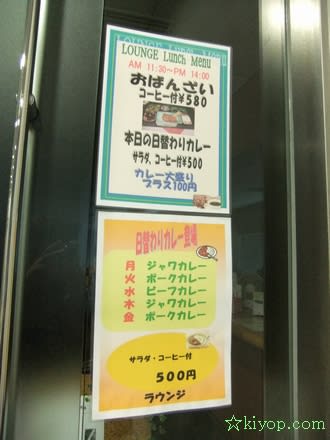 LOUNGE Lunch Menu
LOUNGE Lunch Menu
AM 11:30~PM 14:00
おばんざい
コーヒー付¥580
本日の日替わりカレー
サラダ、コーヒー付¥500
カレー大盛り
プラス100円
日替わりカレー登場
月 ジャワカレー
火 ポークカレー
水 ビーフカレー
木 ジャワカレー
金 ポークカレー
サラダ・コーヒー付
500円
ラウンジ
☆kiyop.com